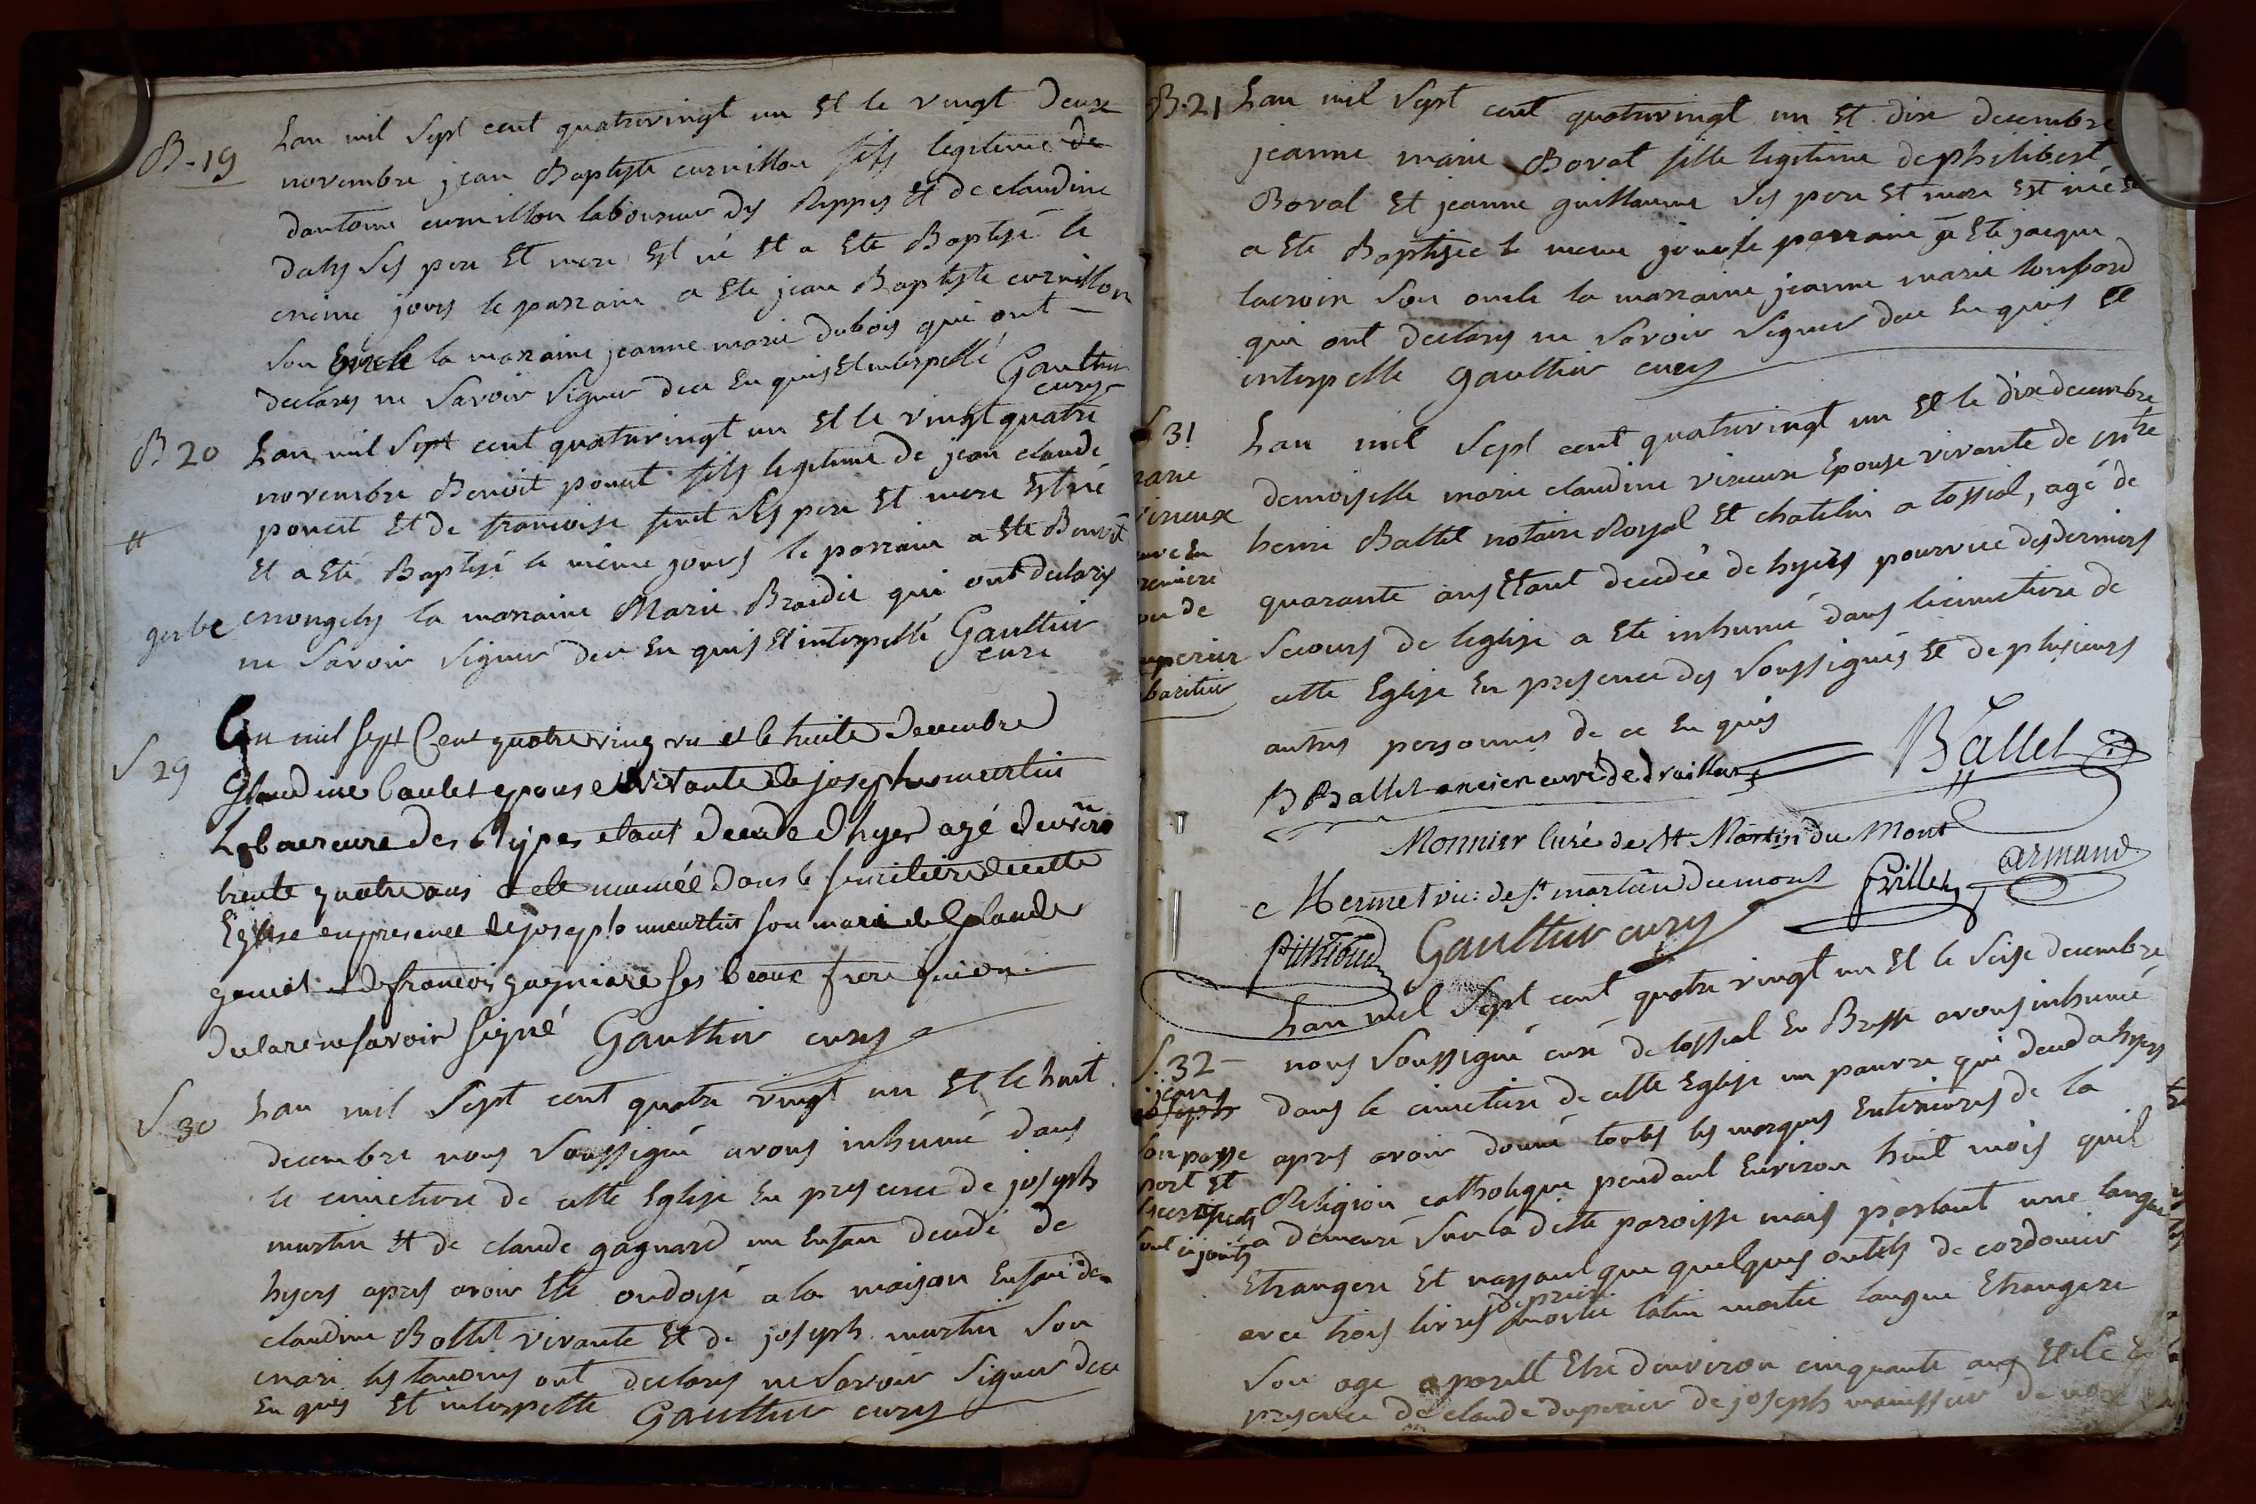 B-19
Lan mil sept cent quatrevingt un et le vingt deux
novembre jean Baptiste curnillon fils legitime de
dantoine curnillon laboureur des Rippes et de claudine
ses pere et mere est né et a ete Baptisé le
meme jours le parrain a ete jean Baptiste curnillon
son oncle la marraine jeanne marie dubois qui ont
declarés ne savoir signer dece enquis et interpellé Gauthier
curé
B 20
Lan mil sept cent quatrevingt un et le vingt quatre
novembre Benoit poncet fils legitime de jean claude
poncet et de francoise ses pere et mere est né
et a eté Baptisé le même jours le parrain a ete Benoit
la marraine Marie qui ont declarés
ne savoir signer dece enquis et interpellé Gauthier
curé
gerbe
S 29
Lan mil sept Cent quatre ving un et le huite decembre
Glaudine baulet epouse vivante de joseph murtin
Laboureure des Ripes etant decede dhyer agé denviro
trente quatre ans a ete inumée dans le simetiere de cette
Eglise en presence de joseph murtin son mari de Glaude
gonnet et de francois gagniare ses beaux frere qui on
declare ne savoir signé Gauthier curé
S 30
Lan mil sept cent quatre vingt un et le huit
decembre nous soussigné avons inhumé dans
le cimetiere de cette Eglise en presence de joseph
murtin et de claude gagnard un enfan decedé de
hyers apres avoir ete ondoyé a la maison enfan de
claudine Bollet vivante et de joseph murtin son
mari les temoins ont declarés ne savoir signer dece
enquis et interpellé Gauthier curé
B.21
Lan mil sept cent quatrevingt un et dix decembre
jeanne marie Borat fille legitime de philibert
Borat et jeanne guillaume ses pere et mere est née et
a ete Baptisée le meme jour le parrain a eté jacque
lacroix son oncle la marraine jeanne marie
qui ont declarés ne savoir signer dece enquis et
interpellé Gauthier curé
S 31
marie
vireux
en
premiere
de
duperier
Lan mil sept cent quatrevingt un et le dix decembre
demoiselle marie claudine vireux epouse vivante de mtre
henri Ballet notaire Royal et chatelin a tossial, agé de
quarante ans etant decedée de hyers pourvue des derniers
secours de leglise a ete inhumé dans le cimetiere de
cette Eglise en presence des soussignés et de plusieurs
autres personnes de ce enquis
B Ballet ancien curé de druillat Ballet
Monnier curé de St Martin du Mont
Mermet vic: de st martin du mont frillet armand
pithioud Gauthier curé
S. 32
jean
joseph
son passe
port et
certificats
sont cijoints
Lan mil sept cent quatre vingt un et le seise decembre
nous soussigné curé de tossial en Bresse avons inhumé
dans le cimetiere de cette Eglise un pauvre qui deceda hyers
apres avoir donné toutes les marques exterieures de la
Religion catholique pendant environ huit mois quil
a demeuré sur la ditte paroisse mais parlant une langue
Etrangere et nayant que quelques outils de cordonier
avec trois livres de prieres moitié latin moitié langue Etrangere
son age a parut etre denviron cinquante ans et ce en
presence de claude duperier de joseph